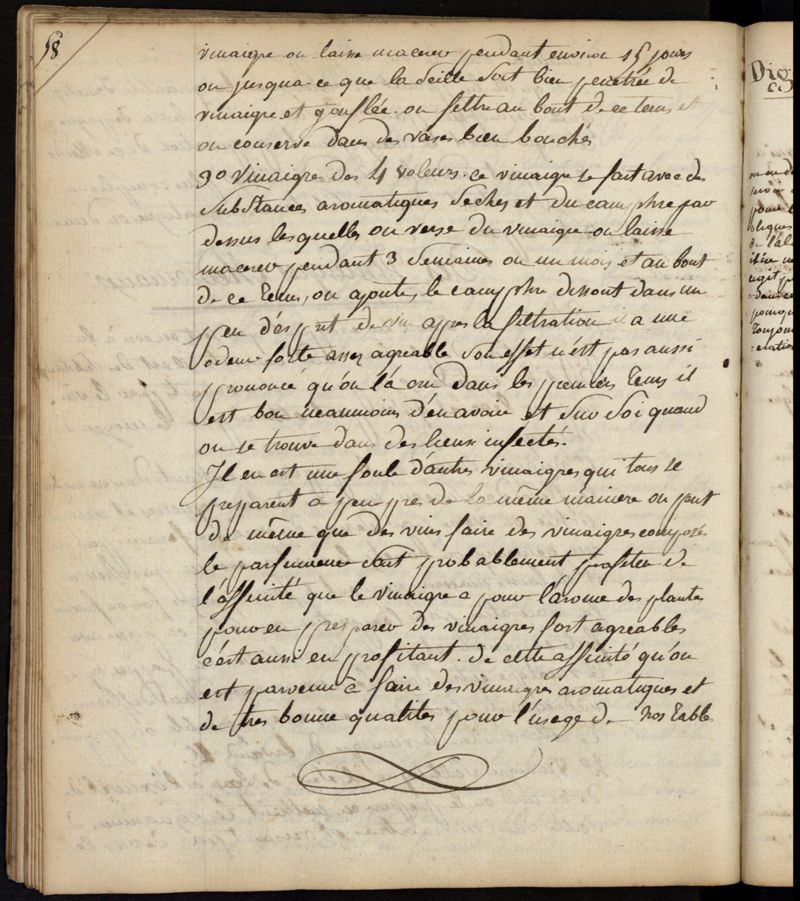 58
vinaigre on laisse macerer pendant environ 15 jours
ou jusqua-ce que la Scille soit bien penetrée de
vinaigre et gonflée. on filtre au bout de ce tems et
on conserve dans des vases bien bouchés
3o Vinaigre des 4 voleurs. ce vinaigre se fait avec des
substances aromatiques seches et du camphre par
dessus lesquelles on verse du vinaigre on laisse
macerer pendant 3 semaines ou un mois et au bout
de ce tems, on ajoute, le camphre dissout dans un
peu d'esprit de vin apres la filtration il a une
odeur forte assez agreable son effet n'est pas aussi
prononcé qu'on l'a cru dans les premiers tems il
est bon neanmoins d'en avoir et sur soi quand
on se trouve dans des lieux infectés.
Il en est une foule d'autres vinaigres qui tous se
preparent a peu pres de la même maniere on peut
de même que des vins faire des vinaigres composés
le parfumeur doit probablement profiter de
l'affinité que le vinaigre a pour l'arome des plantes
pour en preparer des vinaigres fort agreables
c'est aussi en profitant. de cette affinité qu'on
est parvenu à faire des vinaigres aromatiques et
de tres bonne qualités pour l'usage de nos table
Dig